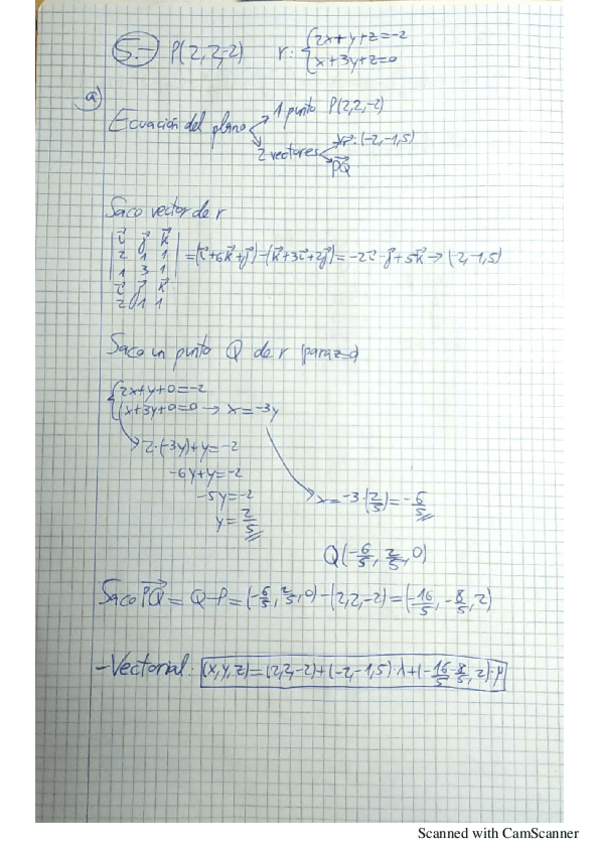 5.- P(2,2,-2) r: {2x+y+z=-2
x+3y+z=0
a)
Ecuación del plano 1 punto P(2,2,-2)
2 vectores Vr: (-2,-1,5)
PQ
Saco vector de r
|i j k|
|2 1 1| =(i+6k+j)-(k+3i+2j)=-2i-j+5k→(-2,-1,5)
|1 3 1|
i j k
2 1 1
Saco un punto Q de r (para z=0)
{2x+y+0=-2
x+3y+0=0 → x=-3y
2·(-3y)+y=-2
-6y+y=-2
-5y=-2 x=-3·(2/5)=-6/5
y=2/5
Q(-6/5, 2/5, 0)
Saco PQ = Q-P = (-6/5, 2/5, 0)-(2,2,-2)=(-16/5, -8/5, 2)
-Vectorial: (x,y,z)=(2,2,-2)+(-2,-1,5)·λ+(-16/5,-8/5,2)·μ
Scanned with CamScanner